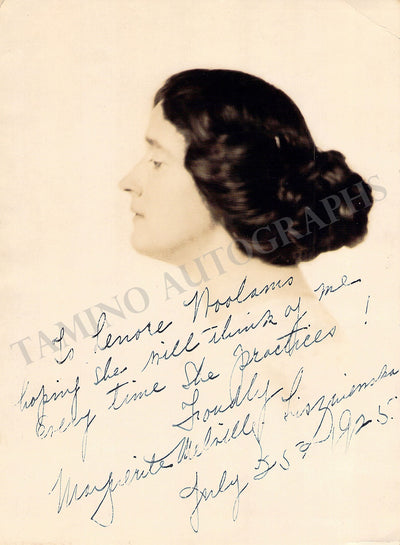 To Lenore Woolams
hoping she will think of me
every time she practices!
Fondly
Marguerite Melville Liszniewska
July 25th 1925.
TAMINO AUTOGRAPHS